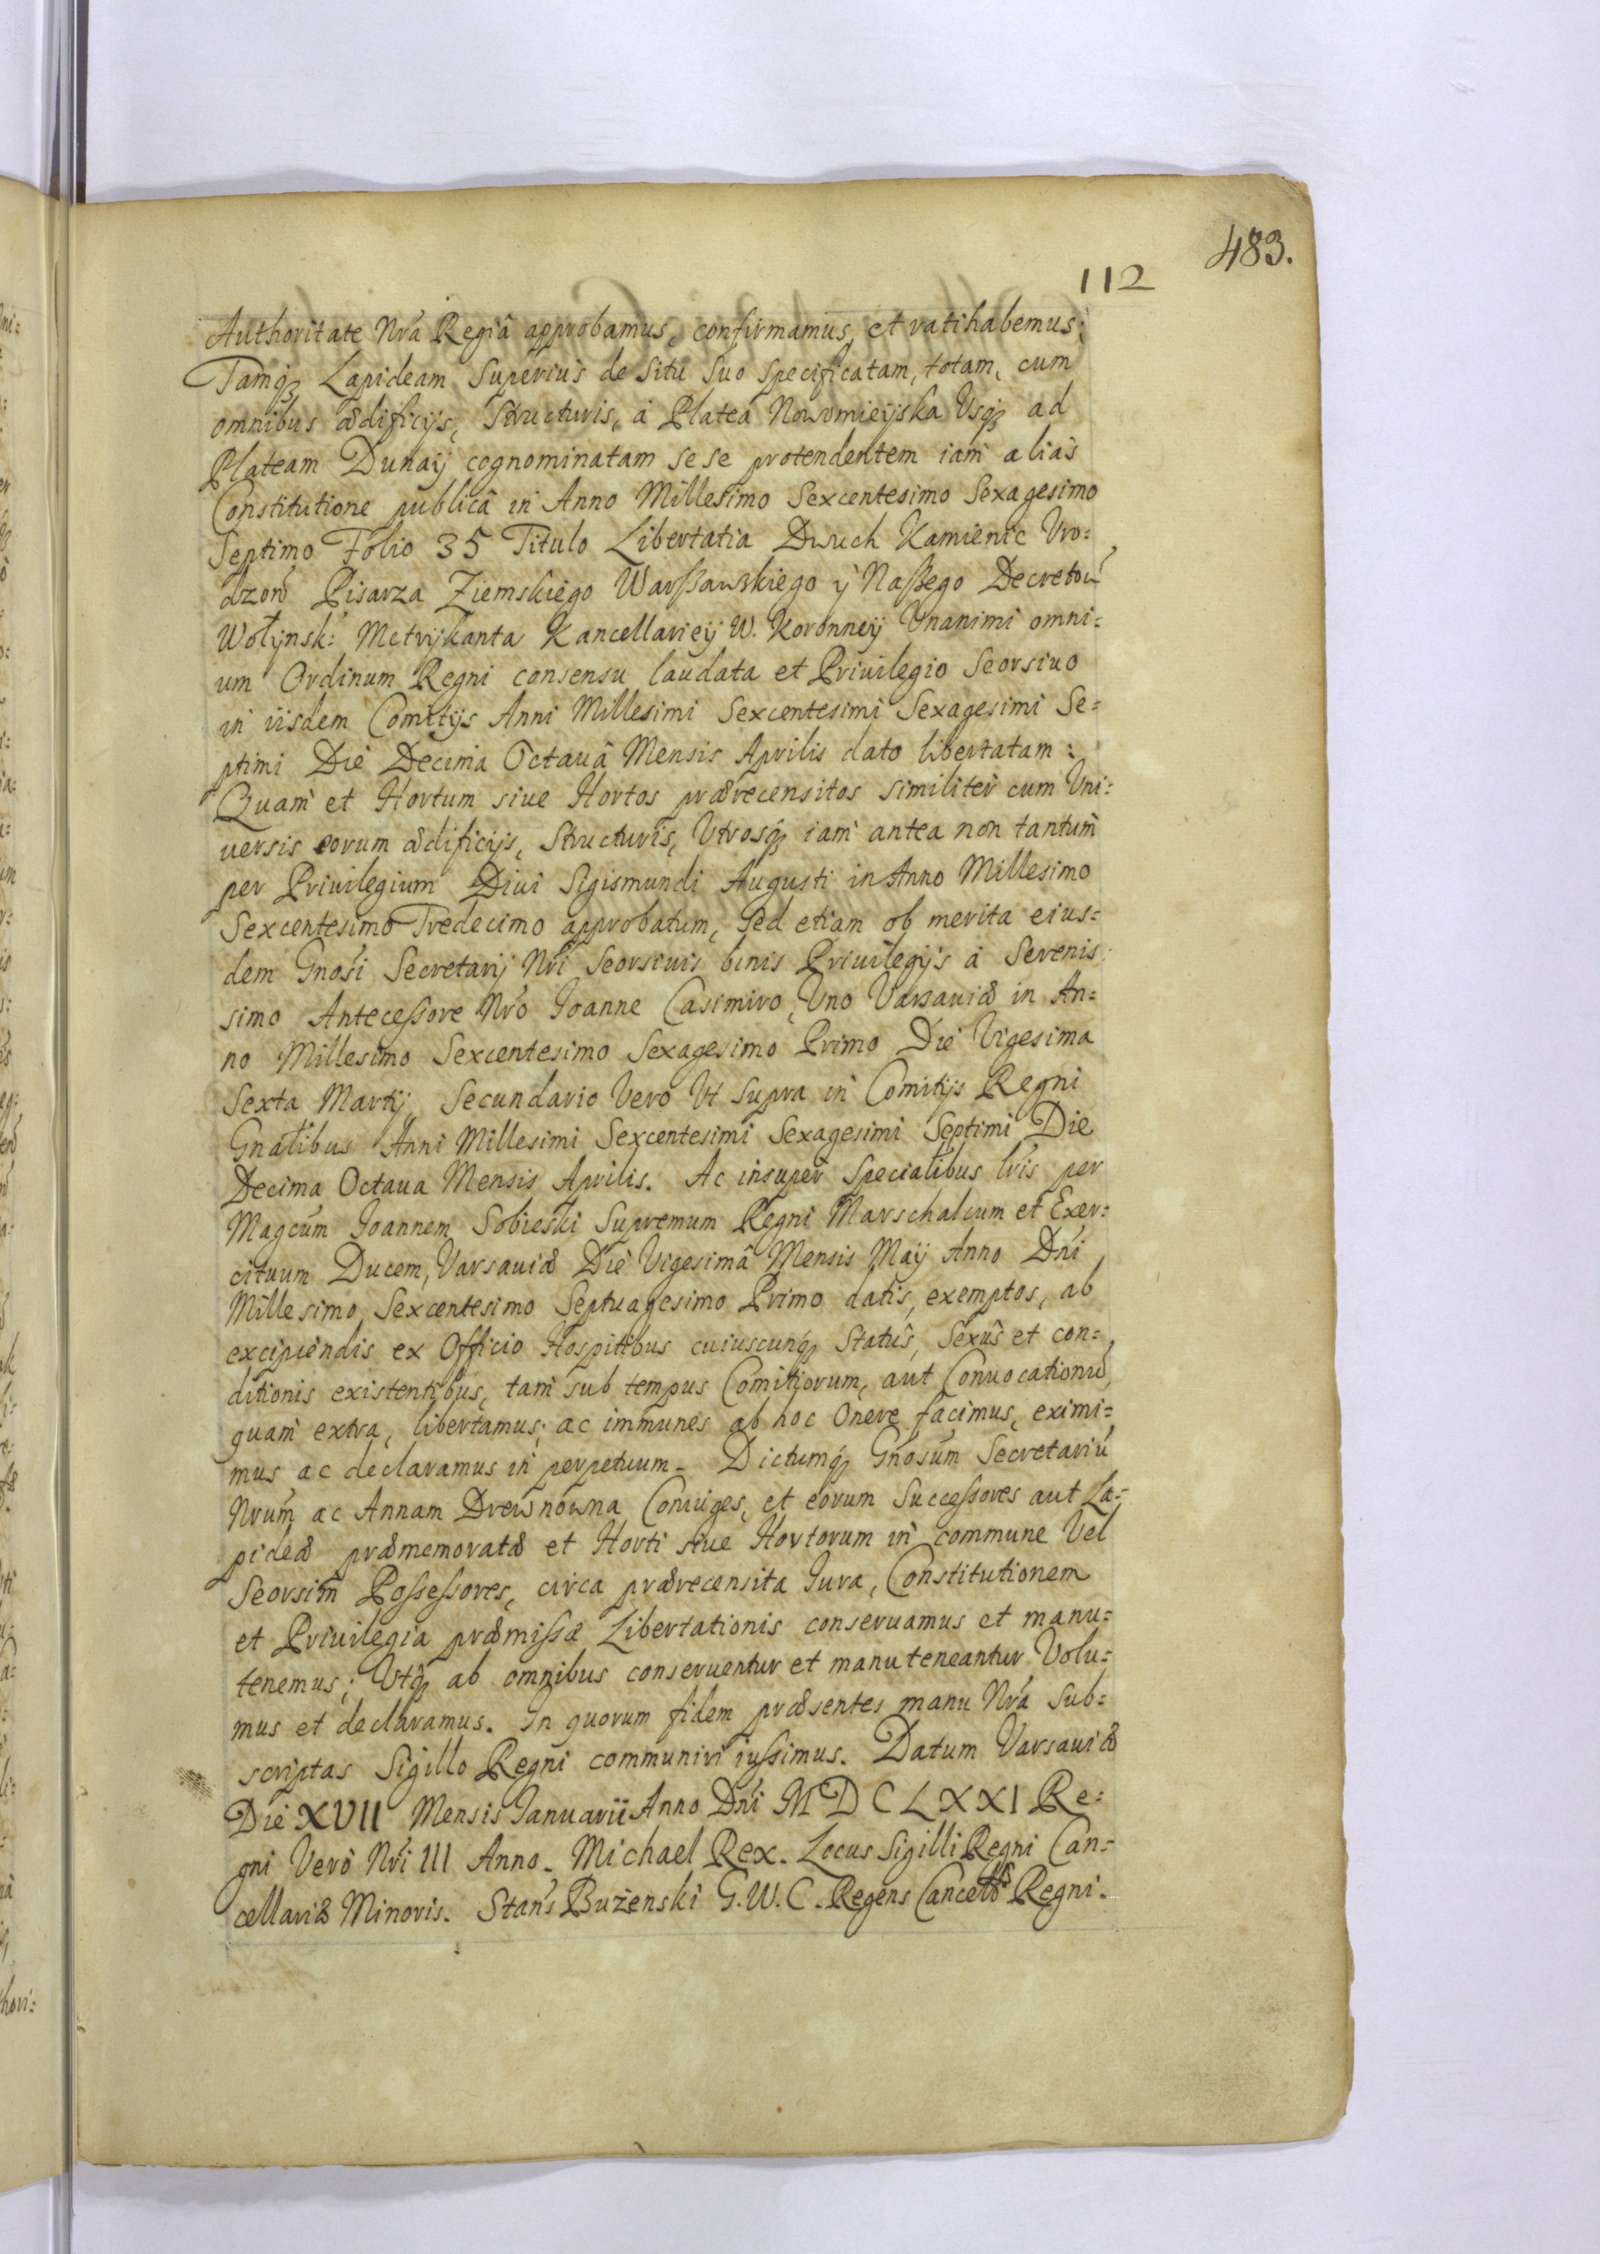 483.
112
Authoritate Nrã Regiâ approbamus, confirmamus, et ratihabemus;
Tamq; Lapideam Superius de Situ Suo Specificatam, totam, cum
omnibus ædificijs, Structuris, à Platea Nowomieyska Usq; ad
Plateam Dunaÿ cognominatam sese protendentem iam alias
Constitutione publicâ in Anno Millesimo Sexcentesimo Sexagesimo
Septimo Folio 35 Titulo Libertatia Dwuch Kamienic Uro=
dzonõ Pisarza Ziemskiego Warßawskiego ÿ Naßego Decretow
Wołynsk: Metrykanta Kancellarieÿ W. Koronneÿ Unanimi omni=
um Ordinum Regni consensu laudata et Priuilegio Seorsiuo
in iisdem Comitijs Anni Millesimi Sexcentesimi Sexagesimi Se=
ptimi Die Decima Octauâ Mensis Aprilis dato libertatam:
Quam et Hortum siue Hortos prærecensitos similiter cum Uni=
uersis eorum ædificijs, Structuris, Utrosq; iam antea non tantum
per Priuilegium Diui Sigismundi Augusti in Anno Millesimo
Sexcentesimo Tredecimo approbatum, Sed etiam ob merita eius=
dem Gnosi Secretarij Nri Seorsiuis binis Priuilegijs à Serenis:
simo Antecessore Nrõ Ioanne Casimiro, Uno Varsauiæ in An=
no Millesimo Sexcentesimo Sexagesimo Primo Die Vigesima
Sexta Martij, Secundario Vero Ut Supra in Comitijs Regni
Gnalibus Anni Millesimi Sexcentesimi Sexagesimi Septimi Die
Decima Octaua Mensis Aprilis. Ac insuper Specialibus lris per
Magcum Ioannem Sobieski Supremum Regni Marschalcum et Exer=
cituum Ducem, Varsauiæ Die Vigesimâ Mensis Maÿ Anno Dni
Millesimo Sexcentesimo Septuagesimo Primo datis, exemptos, ab
excipiendis ex Officio Hospitibus cuiuscunq; Statûs, Sexûs et con=
ditionis existentibus, tam sub tempus Comitiorum, aut Conuocationũ,
quam extra, libertamus; ac immunes ab hoc Onere facimus, eximi=
mus ac declaramus in perpetuum. Dictumq; Gnosum Secretariũ
Nrum ac Annam Drewnowna Coniuges, et eorum Successores aut La=
pideæ præmemoratæ et Horti siue Hortorum in commune Vel
Seorsim Possessores, circa prærecensita Iura, Constitutionem
et Priuilegia præmissæ Libertationis conseruamus et manu=
tenemus; Utq; ab omnibus conseruentur et manuteneantur Volu=
mus et declaramus. In quorum fidem præsentes manu Nrã Sub=
scriptas Sigillo Regni communiri iussimus. Datum Varsauiæ
Die XVII Mensis Ianuarii Anno Dni MDCLXXI Re=
gni Vero Nri III Anno. Michael Rex. Locus Sigilli Regni Can=
cellariæ Minoris. Stans Bużenski G. W. C. Regens Cancellæ Regni.